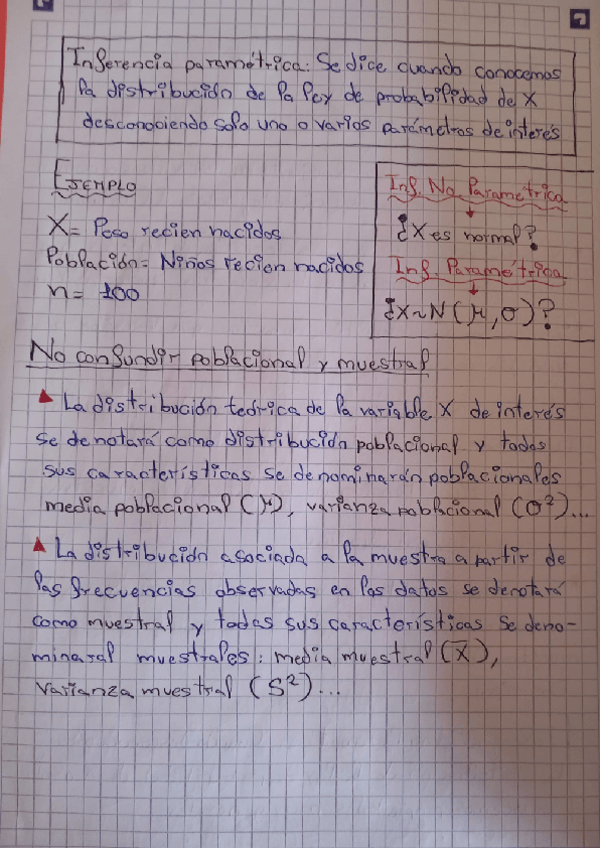 Inferencia paramétrica: Se dice cuando conocemos
la distribución de la ley de probabilidad de X
desconociendo solo uno o varios parámetros de interés
EJEMPLO
X = Peso recien nacidos
Población = Niños recien nacidos
n = 100
Inf. No Parametrica
↓
¿X es normal?
Inf. Paramétrica
↓
¿X~N(μ,σ)?
No confundir poblacional y muestral
▲ La distribución teórica de la variable X de interés
se denotará como distribución poblacional y todas
sus características se denominarán poblacionales
media poblacional (μ), varianza poblacional (σ²)...
▲ La distribución asociada a la muestra a partir de
las frecuencias observadas en los datos se denotará
como muestral y todas sus características se deno-
minaral muestrales: media muestral (X̄),
varianza muestral (S²)...